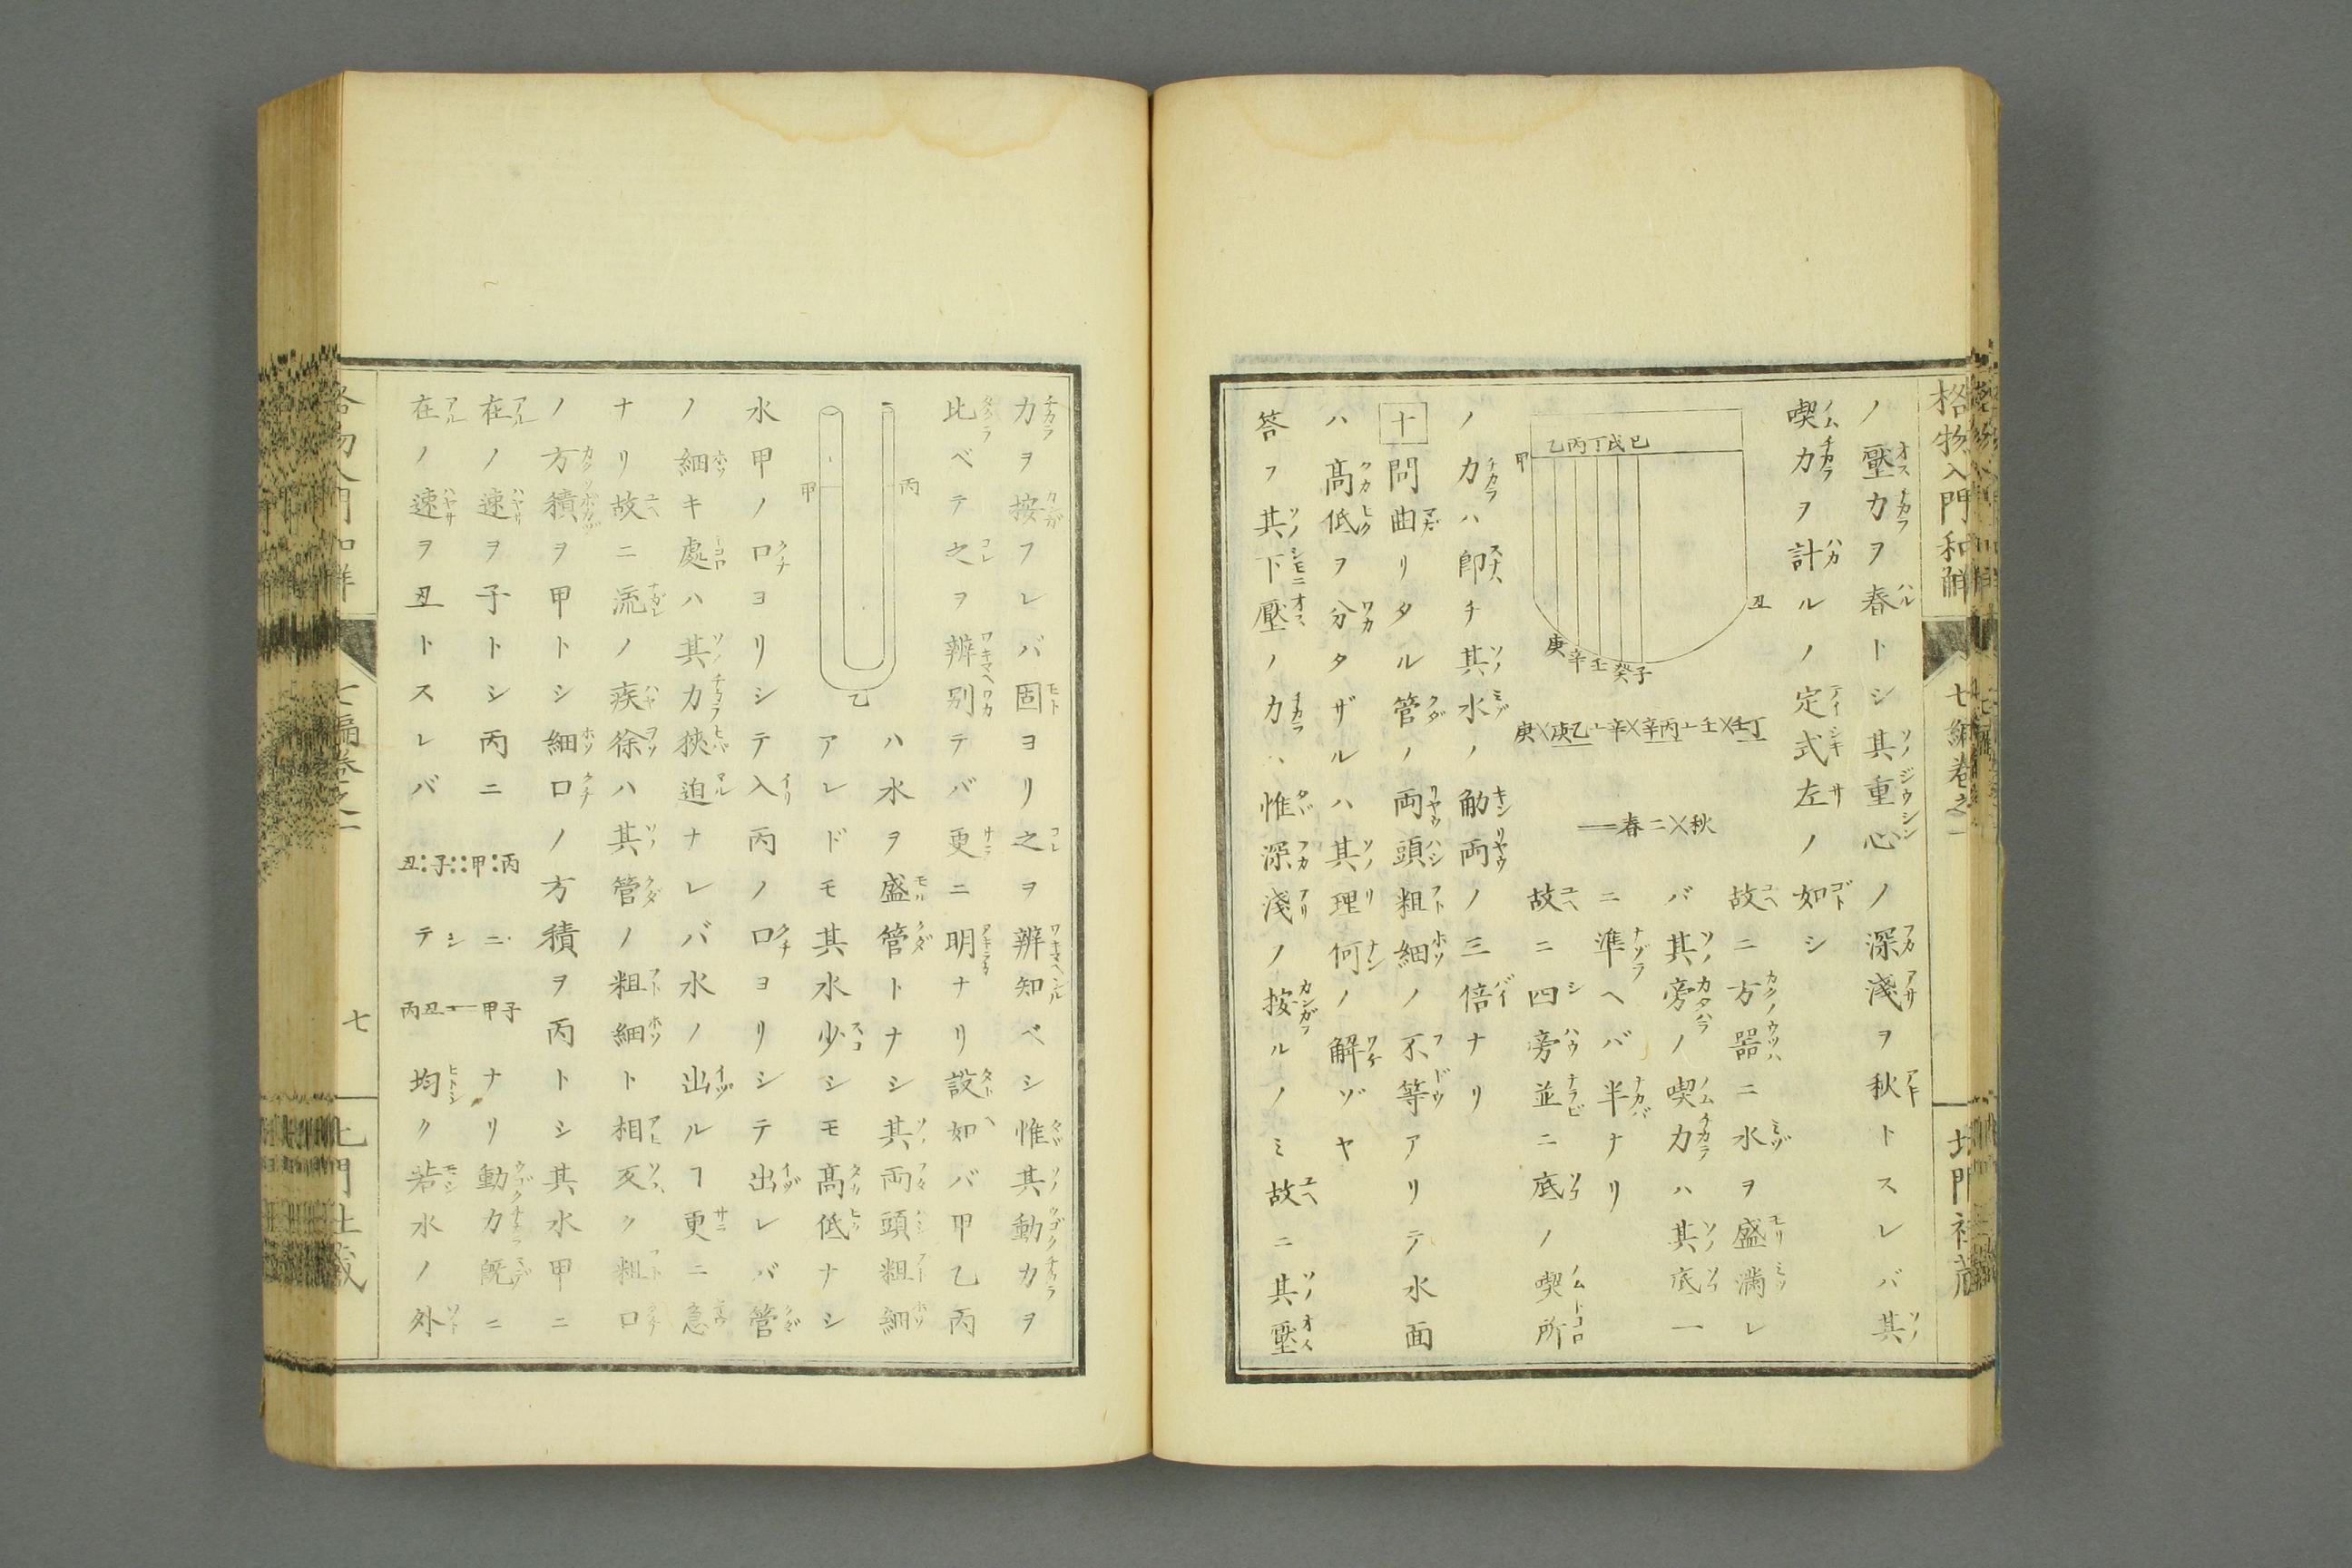 格物入門和解
七編卷之一
北門社蔵
ノ壓力ヲ春トシ其重心ノ深淺ヲ秋トスレバ其
喫力ヲ計ルノ定式左ノ如シ
甲
乙丙丁戊巳
丑
庚辛壬癸子
庚╳庚乙⊥辛╳辛丙⊥壬╳壬丁
══春二╳秋
故ニ方器ニ水ヲ盛滿レ
バ其旁ノ喫力ハ其底一
ニ準ヘバ半ナリ
故ニ四旁並ニ底ノ喫所
ノ力ハ卽チ其水ノ觔両ノ三倍ナリ
十 問曲リタル管ノ両頭粗細ノ不等アリテ水面
ハ髙低ヲ分タザルハ其理何ノ解ゾヤ
答フ其下壓ノ力ハ惟深淺ノ按ルノミ故ニ其壓
力ヲ按フレバ固ヨリ之ヲ辨知ベシ惟其動力ヲ
比ベテ之ヲ辨別テバ更ニ明ナリ設如バ甲乙丙
ハ水ヲ盛管トナシ其両頭粗細
アレドモ其水少シモ髙低ナシ
甲
丙
乙
水甲ノ口ヨリシテ入丙ノ口ヨリシテ出レバ管
ノ細キ處ハ其力狹迫ナレバ水ノ出ルヿ更ニ急
ナリ故ニ流ノ疾徐ハ其管ノ粗細ト相反ク粗口
ノ方積ヲ甲トシ細口ノ方積ヲ丙トシ其水甲ニ
在ノ速ヲ子トシ丙ニ
在ノ速ヲ丑トスレバ
丑:子::甲:丙
ニ
テ
丙丑══甲子
ナリ動力既ニ
均ク若水ノ外
七編卷之一
七